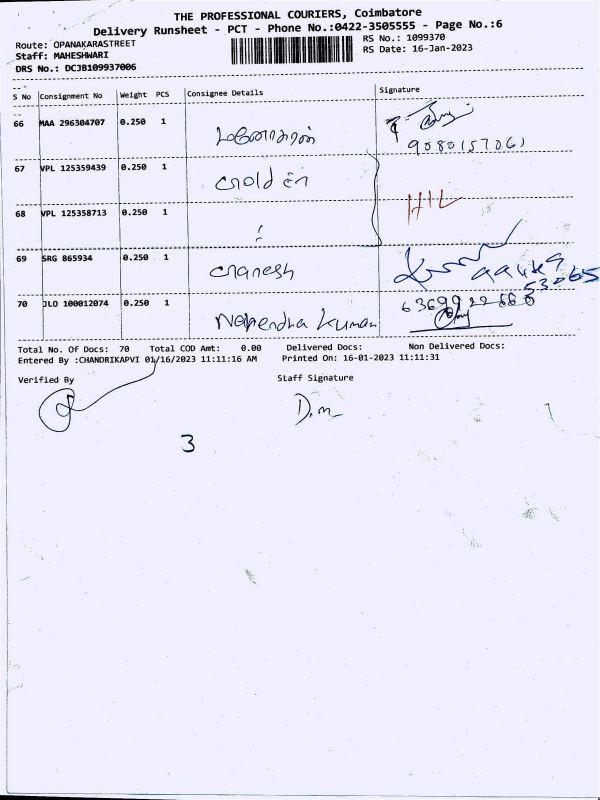 THE PROFESSIONAL COURIERS, Coimbatore
Delivery Runsheet - PCT - Phone No.:0422-3505555 - Page No.:6
Route: OPANAKARASTREET RS No.: 1099370
Staff: MAHESHWARI RS Date: 16-Jan-2023
DRS No.: DCJB109937006
S No Consignment No Weight PCS Consignee Details Signature
66 MAA 296304707 0.250 1 மனோகரன்
9080157061
67 VPL 125359439 0.250 1 Golden
68 VPL 125358713 0.250 1 HIL
69 SRG 865934 0.250 1 Ganesh
53065
70 JLO 100012074 0.250 1 Narendra Kumar
Total No. Of Docs: 70 Total COD Amt: 0.00 Delivered Docs: Non Delivered Docs:
Entered By :CHANDRIKAPVI 01/16/2023 11:11:16 AM Printed On: 16-01-2023 11:11:31
Verified By Staff Signature
D.m
3